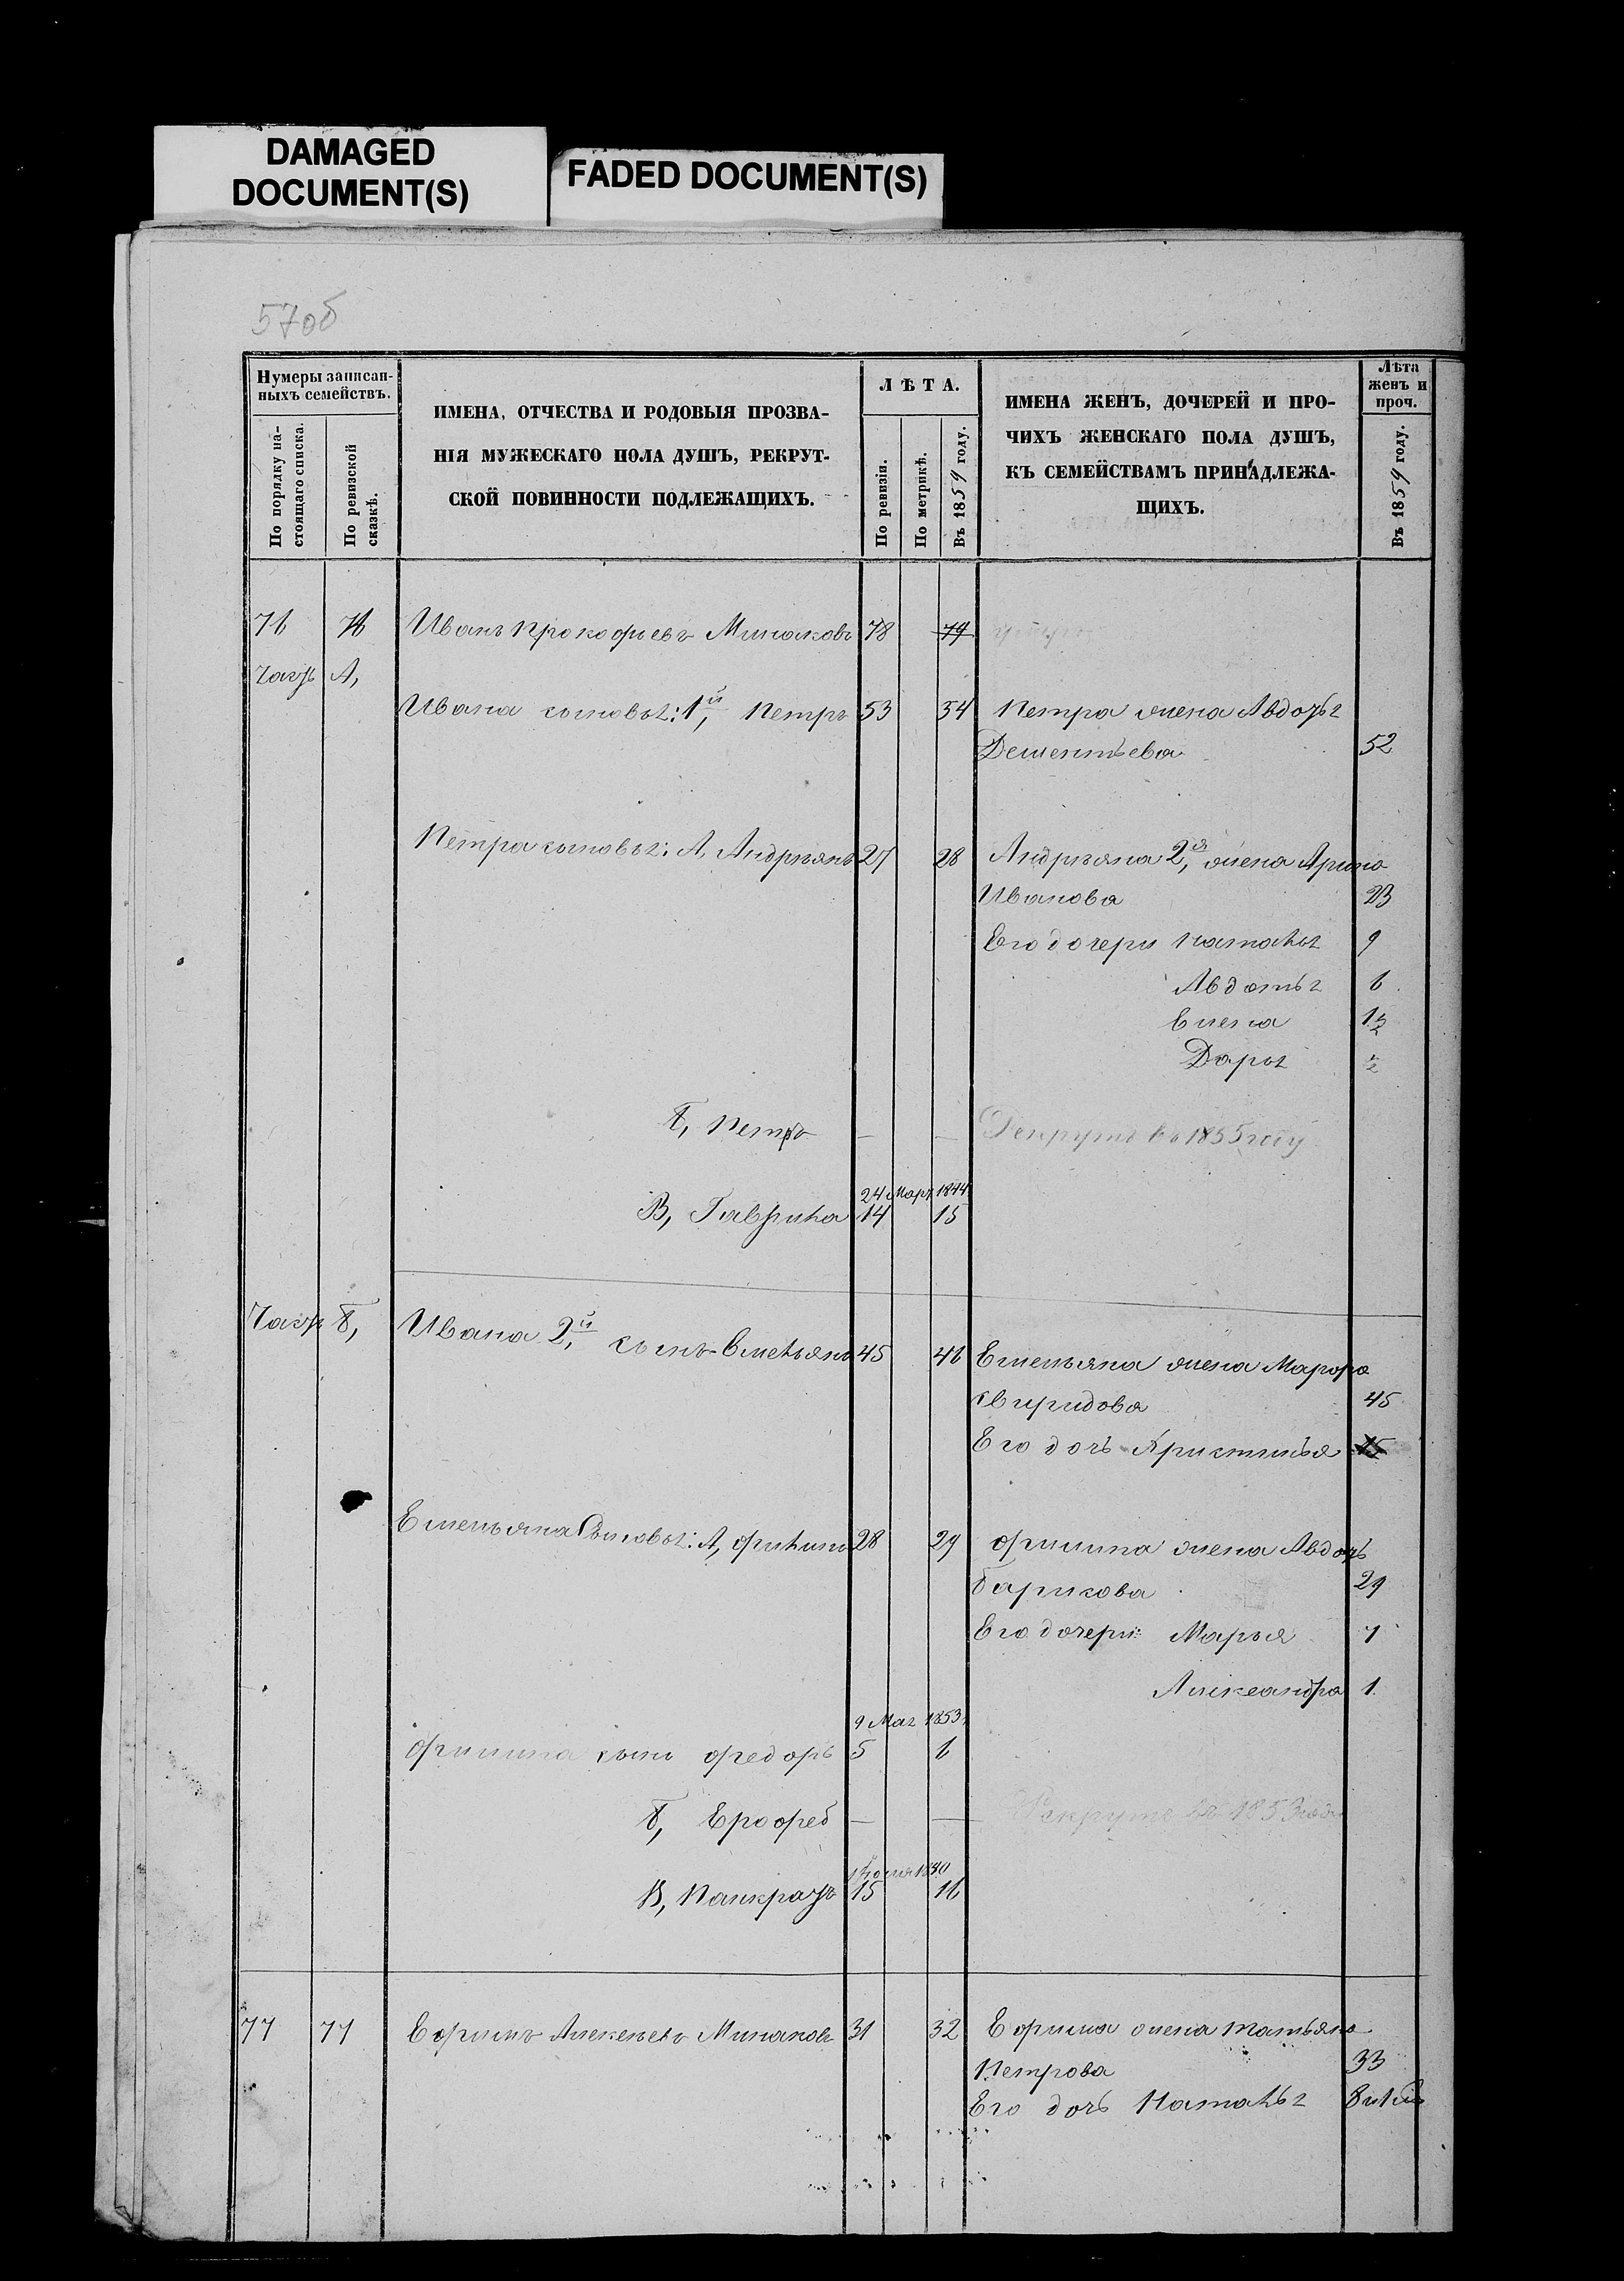 DAMAGED
DOCUMENT(S)
FADED DOCUMENT(S)
57об
Нумеры записан-
ныхъ семействъ.
По порядку на-
стоящаго списка.
По ревизской
сказкѣ.
ИМЕНА, ОТЧЕСТВА И РОДОВЫЯ ПРОЗВА-
НІЯ МУЖЕСКАГО ПОЛА ДУШЪ, РЕКРУТ-
СКОЙ ПОВИННОСТИ ПОДЛЕЖАЩИХЪ.
ЛѢТА.
По ревизіи.
По метрикѣ.
Въ 1859 году.
ИМЕНА ЖЕНЪ, ДОЧЕРЕЙ И ПРО-
ЧИХЪ ЖЕНСКАГО ПОЛА ДУШЪ,
КЪ СЕМЕЙСТВАМЪ ПРИНАДЛЕЖА-
ЩИХЪ.
Лѣта
женъ и
проч.
Въ 1859 году.
76 76 Иванъ Прокофьевъ Минаковъ 78 79
Часть А,
Ивана сыновья: 1й, Петръ 53 54 Петра жена Авдотья
Дементьева 52
Петра сыновья: А, Андрѣянъ 27 28 Андрѣяна 2я, жена Арина
Иванова 23
Его дочери Наталья 9
Авдотья 6
Елена
Дарья
Б, Петръ — — Рекрутъ въ 1855 году
24 Мар. 1844
В, Гаврила 14 15
Часть Б, Ивана 2й, сынъ Емельянъ 45 46 Емельяна жена Марфа
Свиридова 45
Его дочь Христинья 15
Емельяна Сыновья: А, Филипъ 28 29 Филипа жена Авдоть
Борисова 29
Его дочери: Марья 7
Александра 1
9 Мая 1853
Филипа сынъ Федоръ 5 6
Б, Ерофей — — Рекрутъ въ 1853 году
В, Панкратъ 15 16
77 77 Ефимъ Алексеевъ Минаковъ 31 32 Ефима жена Татьяна
Петрова 33
Его дочь Наталья